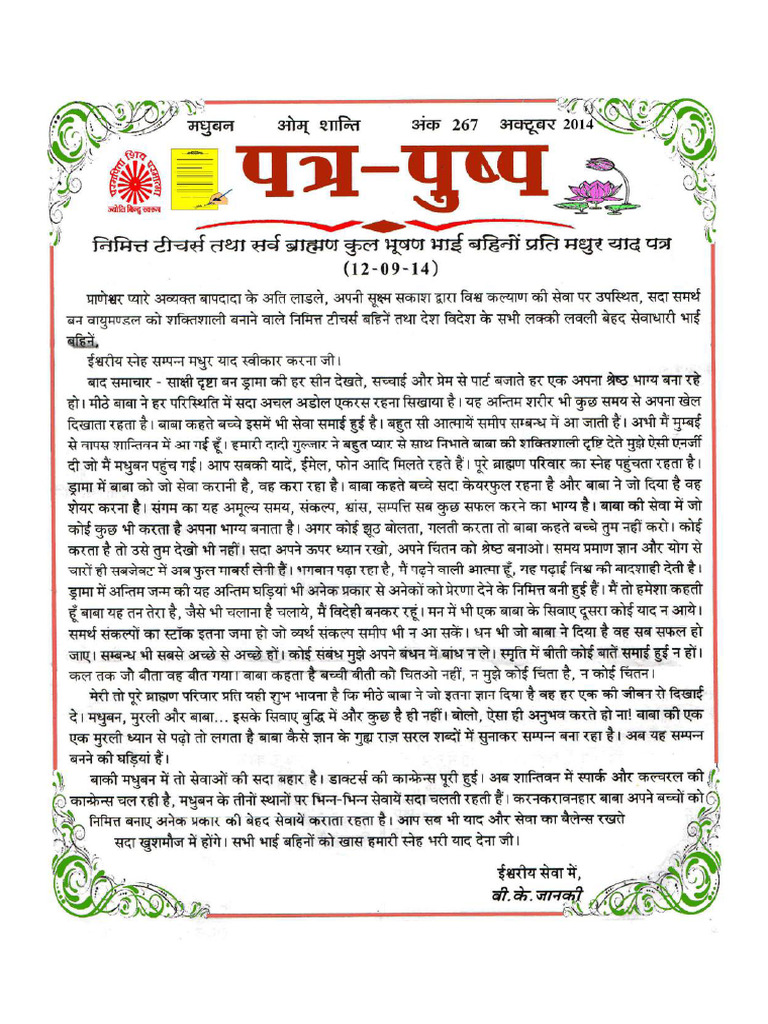 मधुबन ओम् शान्ति अंक 267 अक्टूबर 2014
परमपिता शिव परमात्मा
ज्योति बिन्दु स्वरूप
पत्र-पुष्प
निमित्त टीचर्स तथा सर्व ब्राह्मण कुल भूषण भाई बहिनों प्रति मधुर याद पत्र
(12-09-14)
प्राणेश्वर प्यारे अव्यक्त बापदादा के अति लाडले, अपनी सूक्ष्म सकाश द्वारा विश्व कल्याण की सेवा पर उपस्थित, सदा समर्थ
बन वायुमण्डल को शक्तिशाली बनाने वाले निमित्त टीचर्स बहिनें तथा देश विदेश के सभी लक्की लवली बेहद सेवाधारी भाई
बहिनें,
ईश्वरीय स्नेह सम्पन्न मधुर याद स्वीकार करना जी।
बाद समाचार - साक्षी दृष्टा बन ड्रामा की हर सीन देखते, सच्चाई और प्रेम से पार्ट बजाते हर एक अपना श्रेष्ठ भाग्य बना रहे
हो। मीठे बाबा ने हर परिस्थिति में सदा अचल अडोल एकरस रहना सिखाया है। यह अन्तिम शरीर भी कुछ समय से अपना खेल
दिखाता रहता है। बाबा कहते बच्चे इसमें भी सेवा समाई हुई है। बहुत सी आत्मायें समीप सम्बन्ध में आ जाती हैं। अभी मैं मुम्बई
से वापस शान्तिवन में आ गई हूँ। हमारी दादी गुल्जार ने बहुत प्यार से साथ निभाते बाबा की शक्तिशाली दृष्टि देते मुझे ऐसी एनर्जी
दी जो मैं मधुबन पहुंच गई। आप सबकी यादें, ईमेल, फोन आदि मिलते रहते हैं। पूरे ब्राह्मण परिवार का स्नेह पहुंचता रहता है।
ड्रामा में बाबा को जो सेवा करानी है, वह करा रहा है। बाबा कहते बच्चे सदा केयरफुल रहना है और बाबा ने जो दिया है वह
शेयर करना है। संगम का यह अमूल्य समय, संकल्प, श्वांस, सम्पत्ति सब कुछ सफल करने का भाग्य है। बाबा की सेवा में जो
कोई कुछ भी करता है अपना भाग्य बनाता है। अगर कोई झूठ बोलता, गलती करता तो बाबा कहते बच्चे तुम नहीं करो। कोई
करता है तो उसे तुम देखो भी नहीं। सदा अपने ऊपर ध्यान रखो, अपने चिंतन को श्रेष्ठ बनाओ। समय प्रमाण ज्ञान और योग से
चारों ही सबजेक्ट में अब फुल मार्क्स लेनी हैं। भगवान पढ़ा रहा है, मैं पढ़ने वाली आत्मा हूँ, यह पढ़ाई विश्व की बादशाही देती है।
ड्रामा में अन्तिम जन्म की यह अन्तिम घड़ियां भी अनेक प्रकार से अनेकों को प्रेरणा देने के निमित्त बनी हुई हैं। मैं तो हमेशा कहती
हूँ बाबा यह तन तेरा है, जैसे भी चलाना है चलाये, मैं विदेही बनकर रहूं। मन में भी एक बाबा के सिवाए दूसरा कोई याद न आये।
समर्थ संकल्पों का स्टॉक इतना जमा हो जो व्यर्थ संकल्प समीप भी न आ सकें। धन भी जो बाबा ने दिया है वह सब सफल हो
जाए। सम्बन्ध भी सबसे अच्छे से अच्छे हों। कोई संबंध मुझे अपने बंधन में बांध न ले। स्मृति में बीती कोई बातें समाई हुई न हों।
कल तक जो बीता वह बीत गया। बाबा कहता है बच्ची बीती को चितओ नहीं, न मुझे कोई चिंता है, न कोई चिंतन।
मेरी तो पूरे ब्राह्मण परिवार प्रति यही शुभ भावना है कि मीठे बाबा ने जो इतना ज्ञान दिया है वह हर एक की जीवन से दिखाई
दे। मधुबन, मुरली और बाबा... इसके सिवाए बुद्धि में और कुछ है ही नहीं। बोलो, ऐसा ही अनुभव करते हो ना! बाबा की एक
एक मुरली ध्यान से पढ़ो तो लगता है बाबा कैसे ज्ञान के गुह्य राज़ सरल शब्दों में सुनाकर सम्पन्न बना रहा है। अब यह सम्पन्न
बनने की घड़ियां हैं।
बाकी मधुबन में तो सेवाओं की सदा बहार है। डाक्टर्स की कान्फ्रेन्स पूरी हुई। अब शान्तिवन में स्पार्क और कल्चरल की
कान्फ्रेन्स चल रही है, मधुबन के तीनों स्थानों पर भिन्न-भिन्न सेवायें सदा चलती रहती हैं। करनकरावनहार बाबा अपने बच्चों को
निमित्त बनाए अनेक प्रकार की बेहद सेवायें कराता रहता है। आप सब भी याद और सेवा का बैलेन्स रखते
सदा खुशमौज में होंगे। सभी भाई बहिनों को खास हमारी स्नेह भरी याद देना जी।
ईश्वरीय सेवा में,
बी.के.जानकी